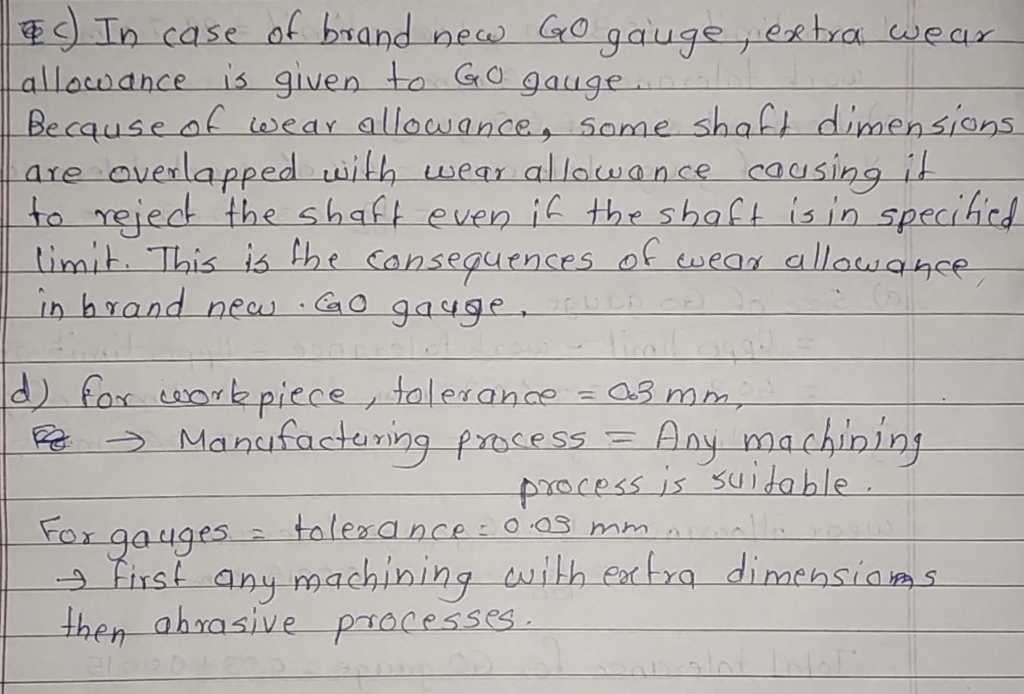 c) In case of brand new GO gauge, extra wear
allowance is given to GO gauge.
Because of wear allowance, some shaft dimensions
are overlapped with wear allowance causing it
to reject the shaft even if the shaft is in specified
limit. This is the consequences of wear allowance
in brand new GO gauge.
d) for workpiece, tolerance = 0.3 mm,
→ Manufacturing process = Any machining
process is suitable.
For gauges = tolerance = 0.03 mm
→ first any machining with extra dimensions
then abrasive processes.